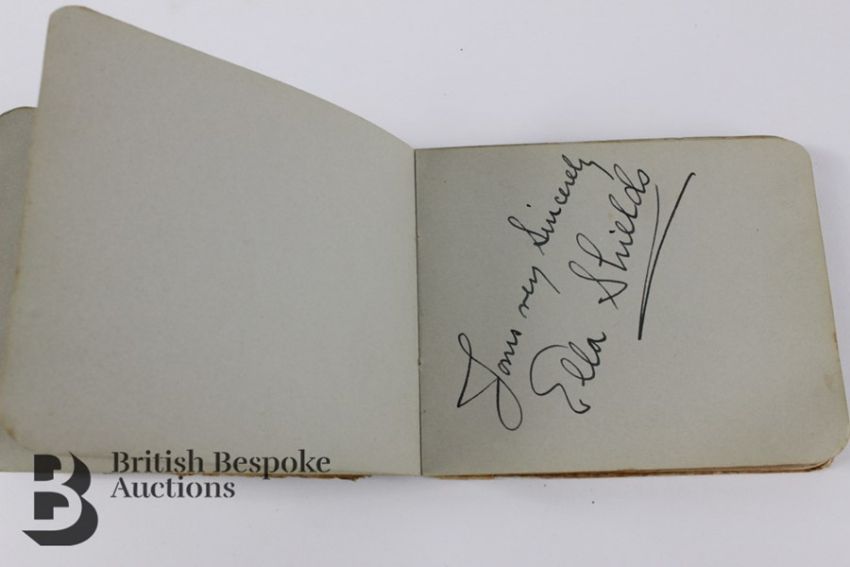 Yours very Sincerely
Ella Shields
British Bespoke
Auctions